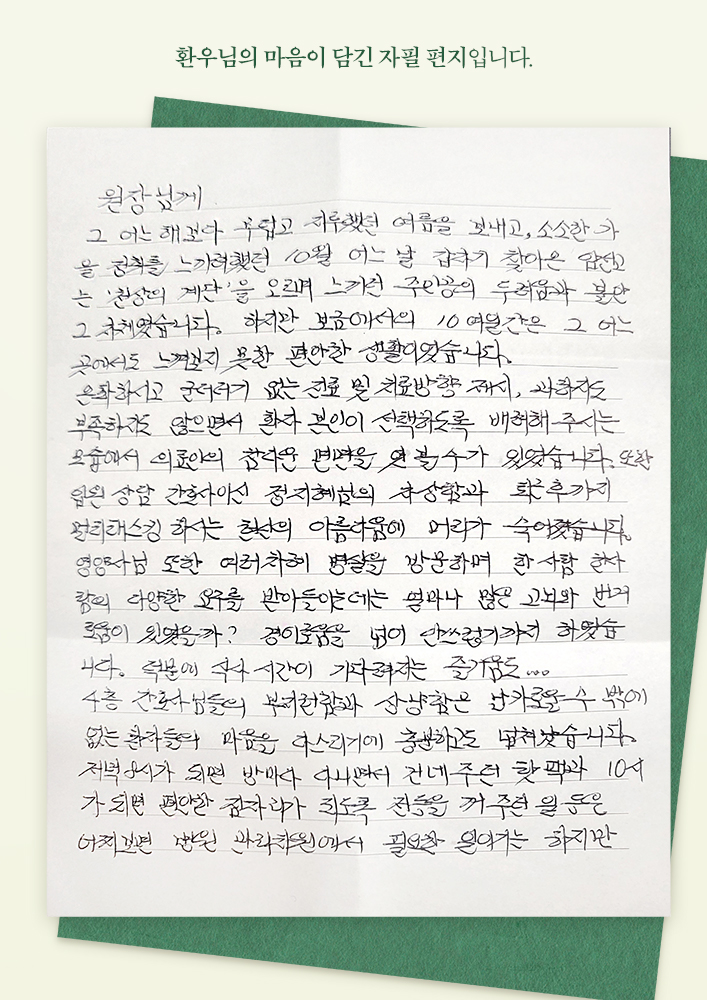 환우님의 마음이 담긴 자필 편지입니다.
원장님께
그 어느해보다 무덥고 지루했던 여름을 보내고, 소소한 가
을 정취를 느끼려했던 10월 어느 날 갑자기 찾아온 암선고
는 '천상의 계단'을 오르며 느끼던 주인공의 두려움과 불안
그 자체였습니다. 하지만 보금에서의 10여일간은 그 어느
곳에서도 느껴보지 못한 편안한 생활이었습니다.
온화하시고 군더더기 없는 진료 및 치료방향 제시, 과하지도
부족하지도 않으면서 환자 본인이 선택하도록 배려해 주시는
모습에서 의료인의 참다운 면면을 엿 볼 수가 있었습니다. 또한
입원 상담 간호사이신 정지혜님의 자상함과 퇴근후까지
멀티태스킹 하시는 헌신의 아름다움에 머리가 숙여졌습니다.
영양사님 또한 여러차례 병실을 방문하며 한사람 한사
람의 다양한 요구를 받아들이는데는 얼마나 많은 고뇌와 번거
로움이 있었을까? 경이로움을 넘어 안쓰럽기까지 하였습
니다. 덕분에 식사 시간이 기다려지는 즐거움도...
4층 간호사님들의 부지런함과 상냥함은 날카로울 수 밖에
없는 환자들의 마음을 다스리기에 충분하고도 넘쳐났습니다.
저녁 8시가 되면 방마다 다니면서 건네주던 핫팩과 10시
가 되면 편안한 잠자리가 되도록 전등을 꺼 주던 일 등은
어찌보면 병원 관리차원에서 필요한 일이기는 하지만